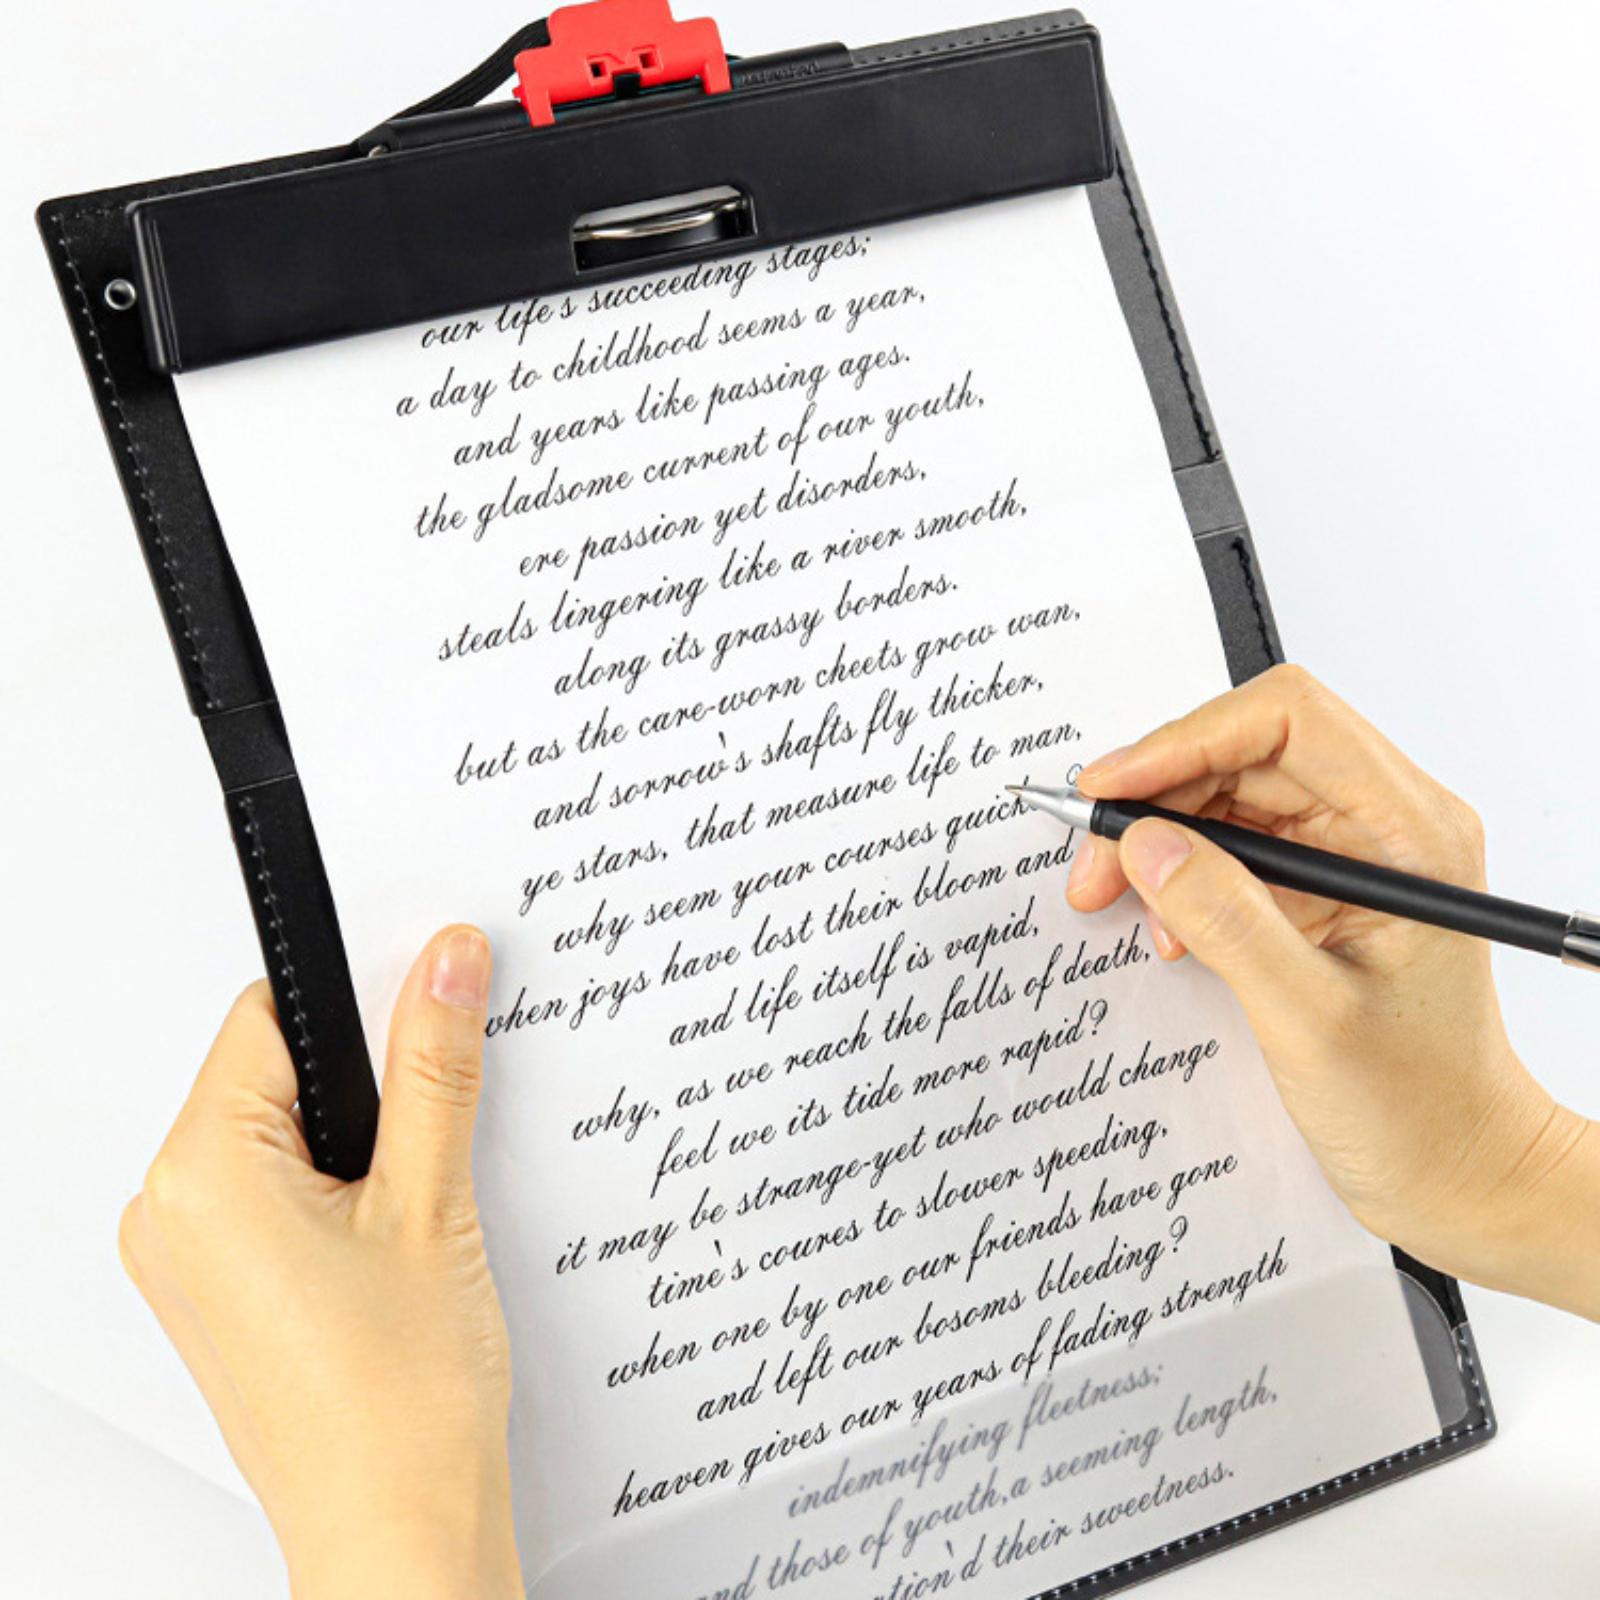 our life's succeeding stages;
a day to childhood seems a year,
and years like passing ages.
the gladsome current of our youth,
ere passion yet disorders,
steals lingering like a river smooth,
along its grassy borders.
but as the care-worn cheets grow wan,
and sorrow's shafts fly thicker,
ye stars, that measure life to man,
why seem your courses quick
when joys have lost their bloom and
and life itself is vapid,
why, as we reach the falls of death,
feel we its tide more rapid?
it may be strange-yet who would change
time's coures to slower speeding,
when one by one our friends have gone
and left our bosoms bleeding?
heaven gives our years of fading strength
indemnifying fleetness;
and those of youth,a seeming length,
tion'd their sweetness.